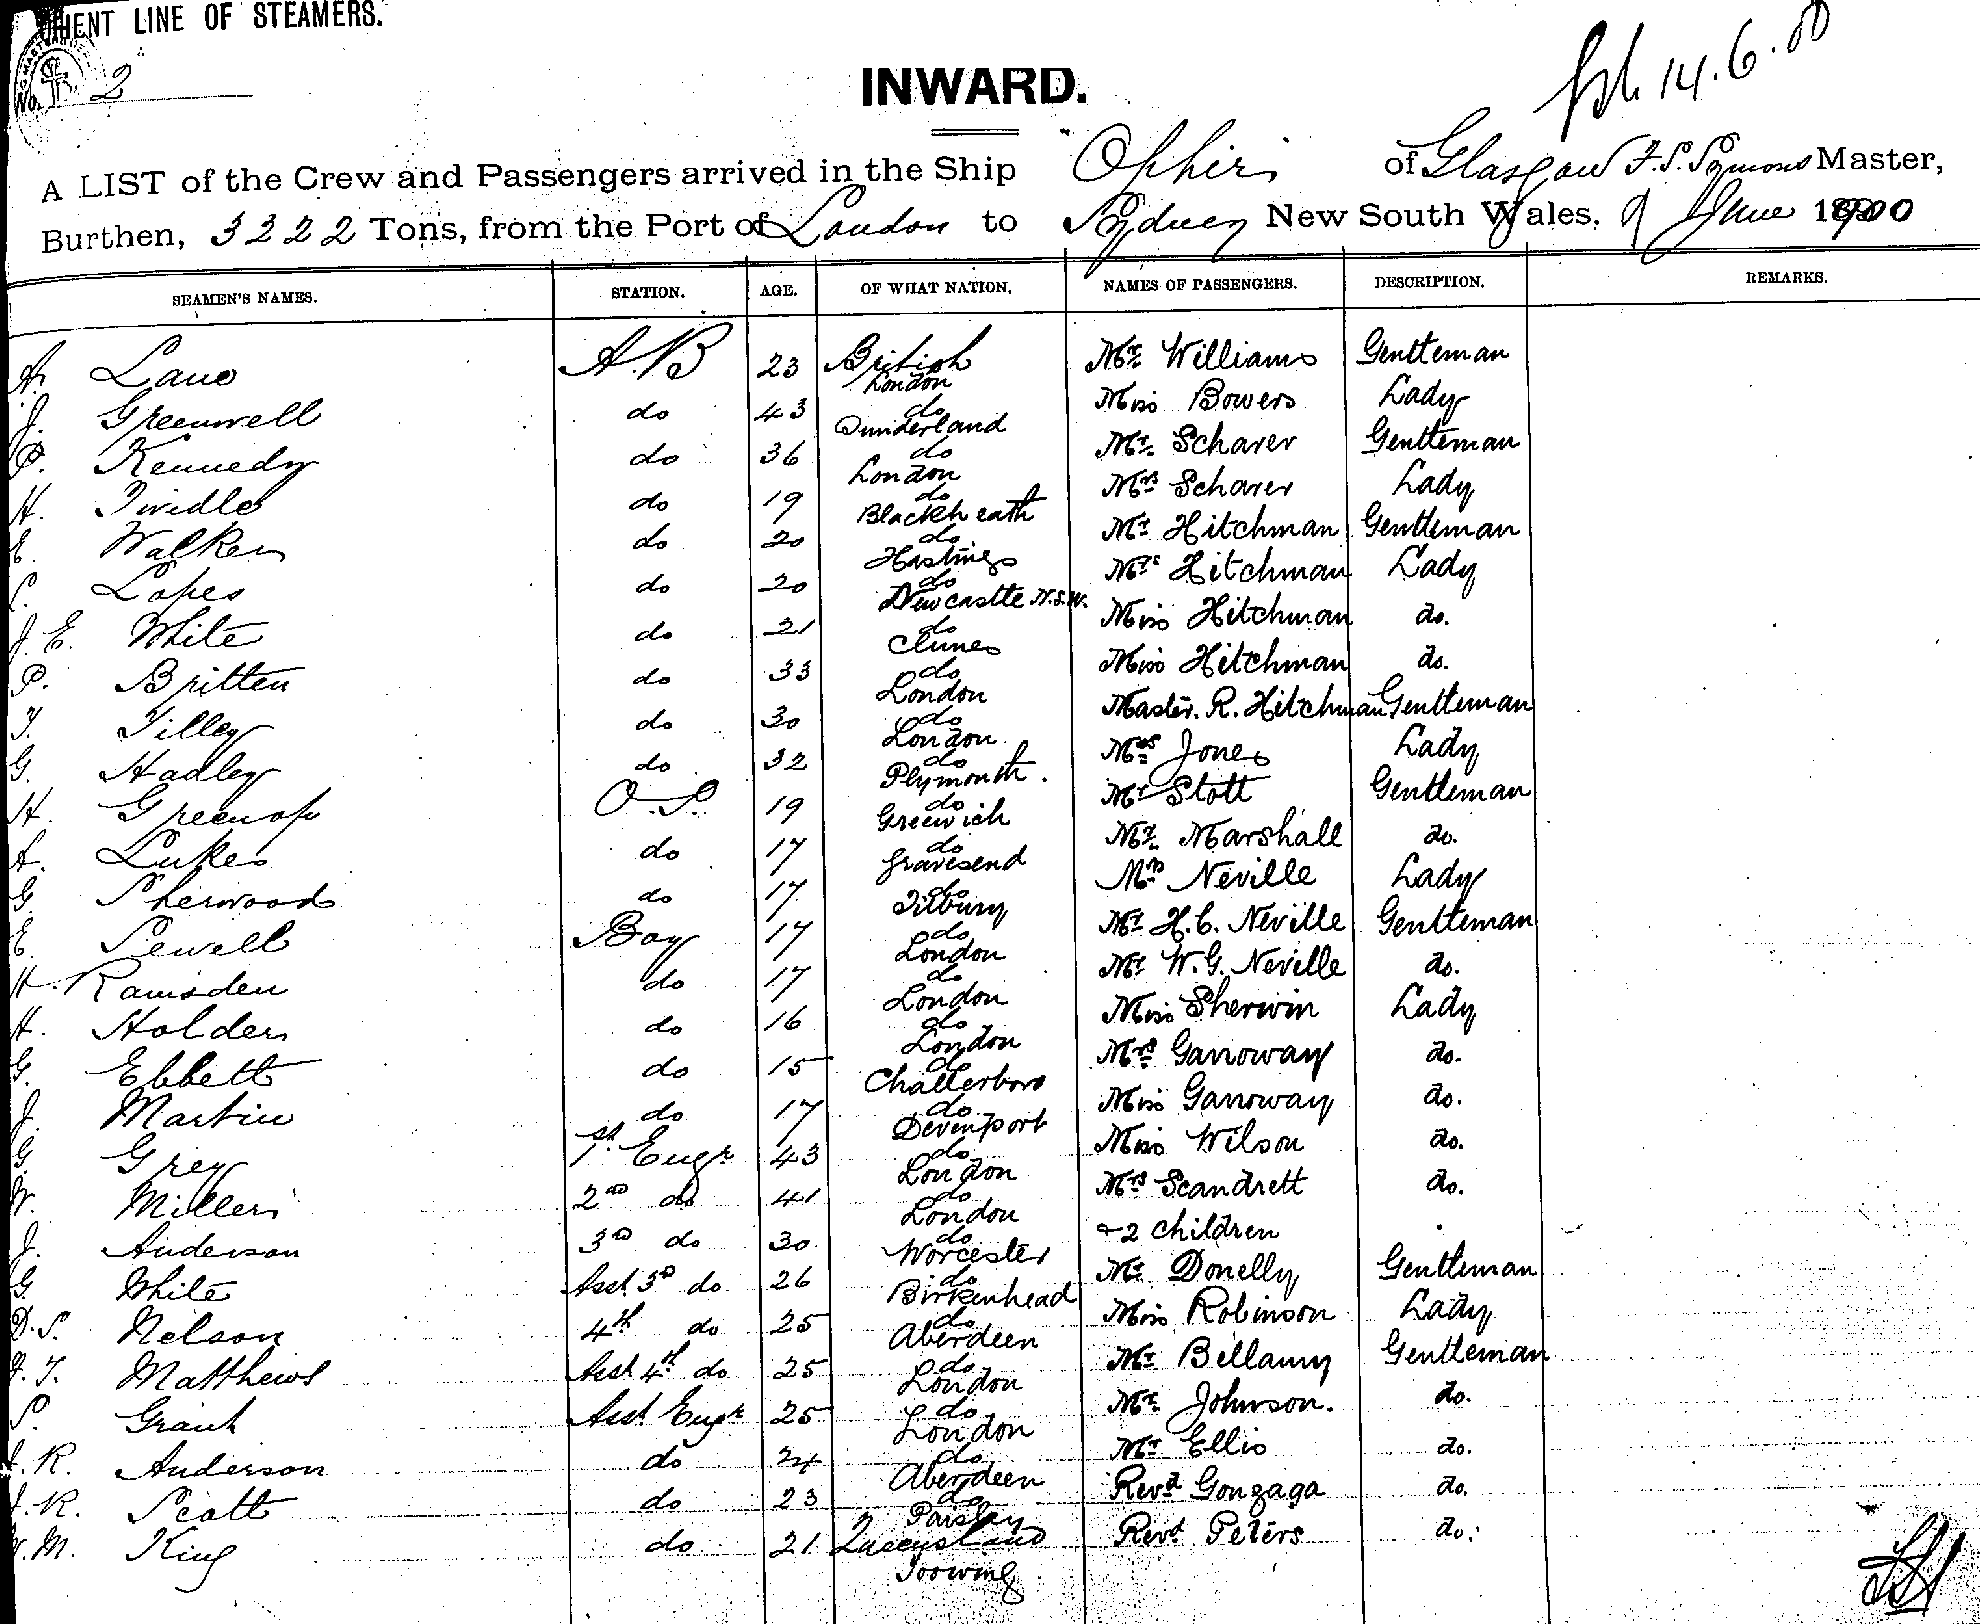 ORIENT LINE OF STEAMERS.
No. 2
14.6.00
INWARD.
A LIST of the Crew and Passengers arrived in the Ship Ophir of Glasgow F.S. Symons Master,
Burthen, 3222 Tons, from the Port of London to Sydney New South Wales. 9 June 1900
SEAMEN'S NAMES. STATION. AGE. OF WHAT NATION. NAMES OF PASSENGERS. DESCRIPTION. REMARKS.
A. Lane A.B 23 British London Mr. Williams Gentleman
J. Greenwell do 43 do Sunderland Miss Bowers Lady
P. Kennedy do 36 do London Mr. Scharer Gentleman
H. Twidle do 19 do Blackheath Mrs Scharer Lady
E. Walker do 20 do Hastings Mr Hitchman Gentleman
Lopes do 20 do Newcastle N.S.W. Mrs Hitchman Lady
J. E. White do 21 do Clunes Miss Hitchman do.
P. Britten do 33 do London Miss Hitchman do.
T. Tilley do 30 do London Master. R. Hitchman Gentleman
G. Hadley do 32 do Plymouth. Mrs Jones Lady
H. Greenop O.S. 19 do Greewich Mr Stott Gentleman
A. Lukes do 17 do Gravesend Mr. Marshall do.
G. Sherwood do 17 do Tilbury Mrs Neville Lady
E. Sewell Boy 17 do London Mr H.C. Neville Gentleman
H. Ramsden do 17 do London Mr W.G. Neville do.
H. Holder do 16 do London Miss Sherwin Lady
G. Ebbett do 15 do Chatterboro Mrs Garroway do.
J. Martin do 17 do Devenport Miss Garroway do.
G. Grey 1st Engr 43 do London Miss Wilson do.
W. Miller 2nd do 41 do London Mrs Scandrett do.
J. Anderson 3rd do 30 do Worcester & 2 children
G. White Asst 3rd do 26 do Birkenhead Mr. Donelly Gentleman
D.S. Nelson 4th do 25 do Aberdeen Miss Robinson Lady
T. Matthews Asst 4th do 25 do London Mr. Bellamy Gentleman
Grant Asst Engr 25 do London Mr. Johnson. do.
R. Anderson do 24 do Aberdeen Mr Ellis do.
R. Scott do 23 do Paisley Revd Gonzaga do.
M. King do 21 Queensland Revd Peters do.